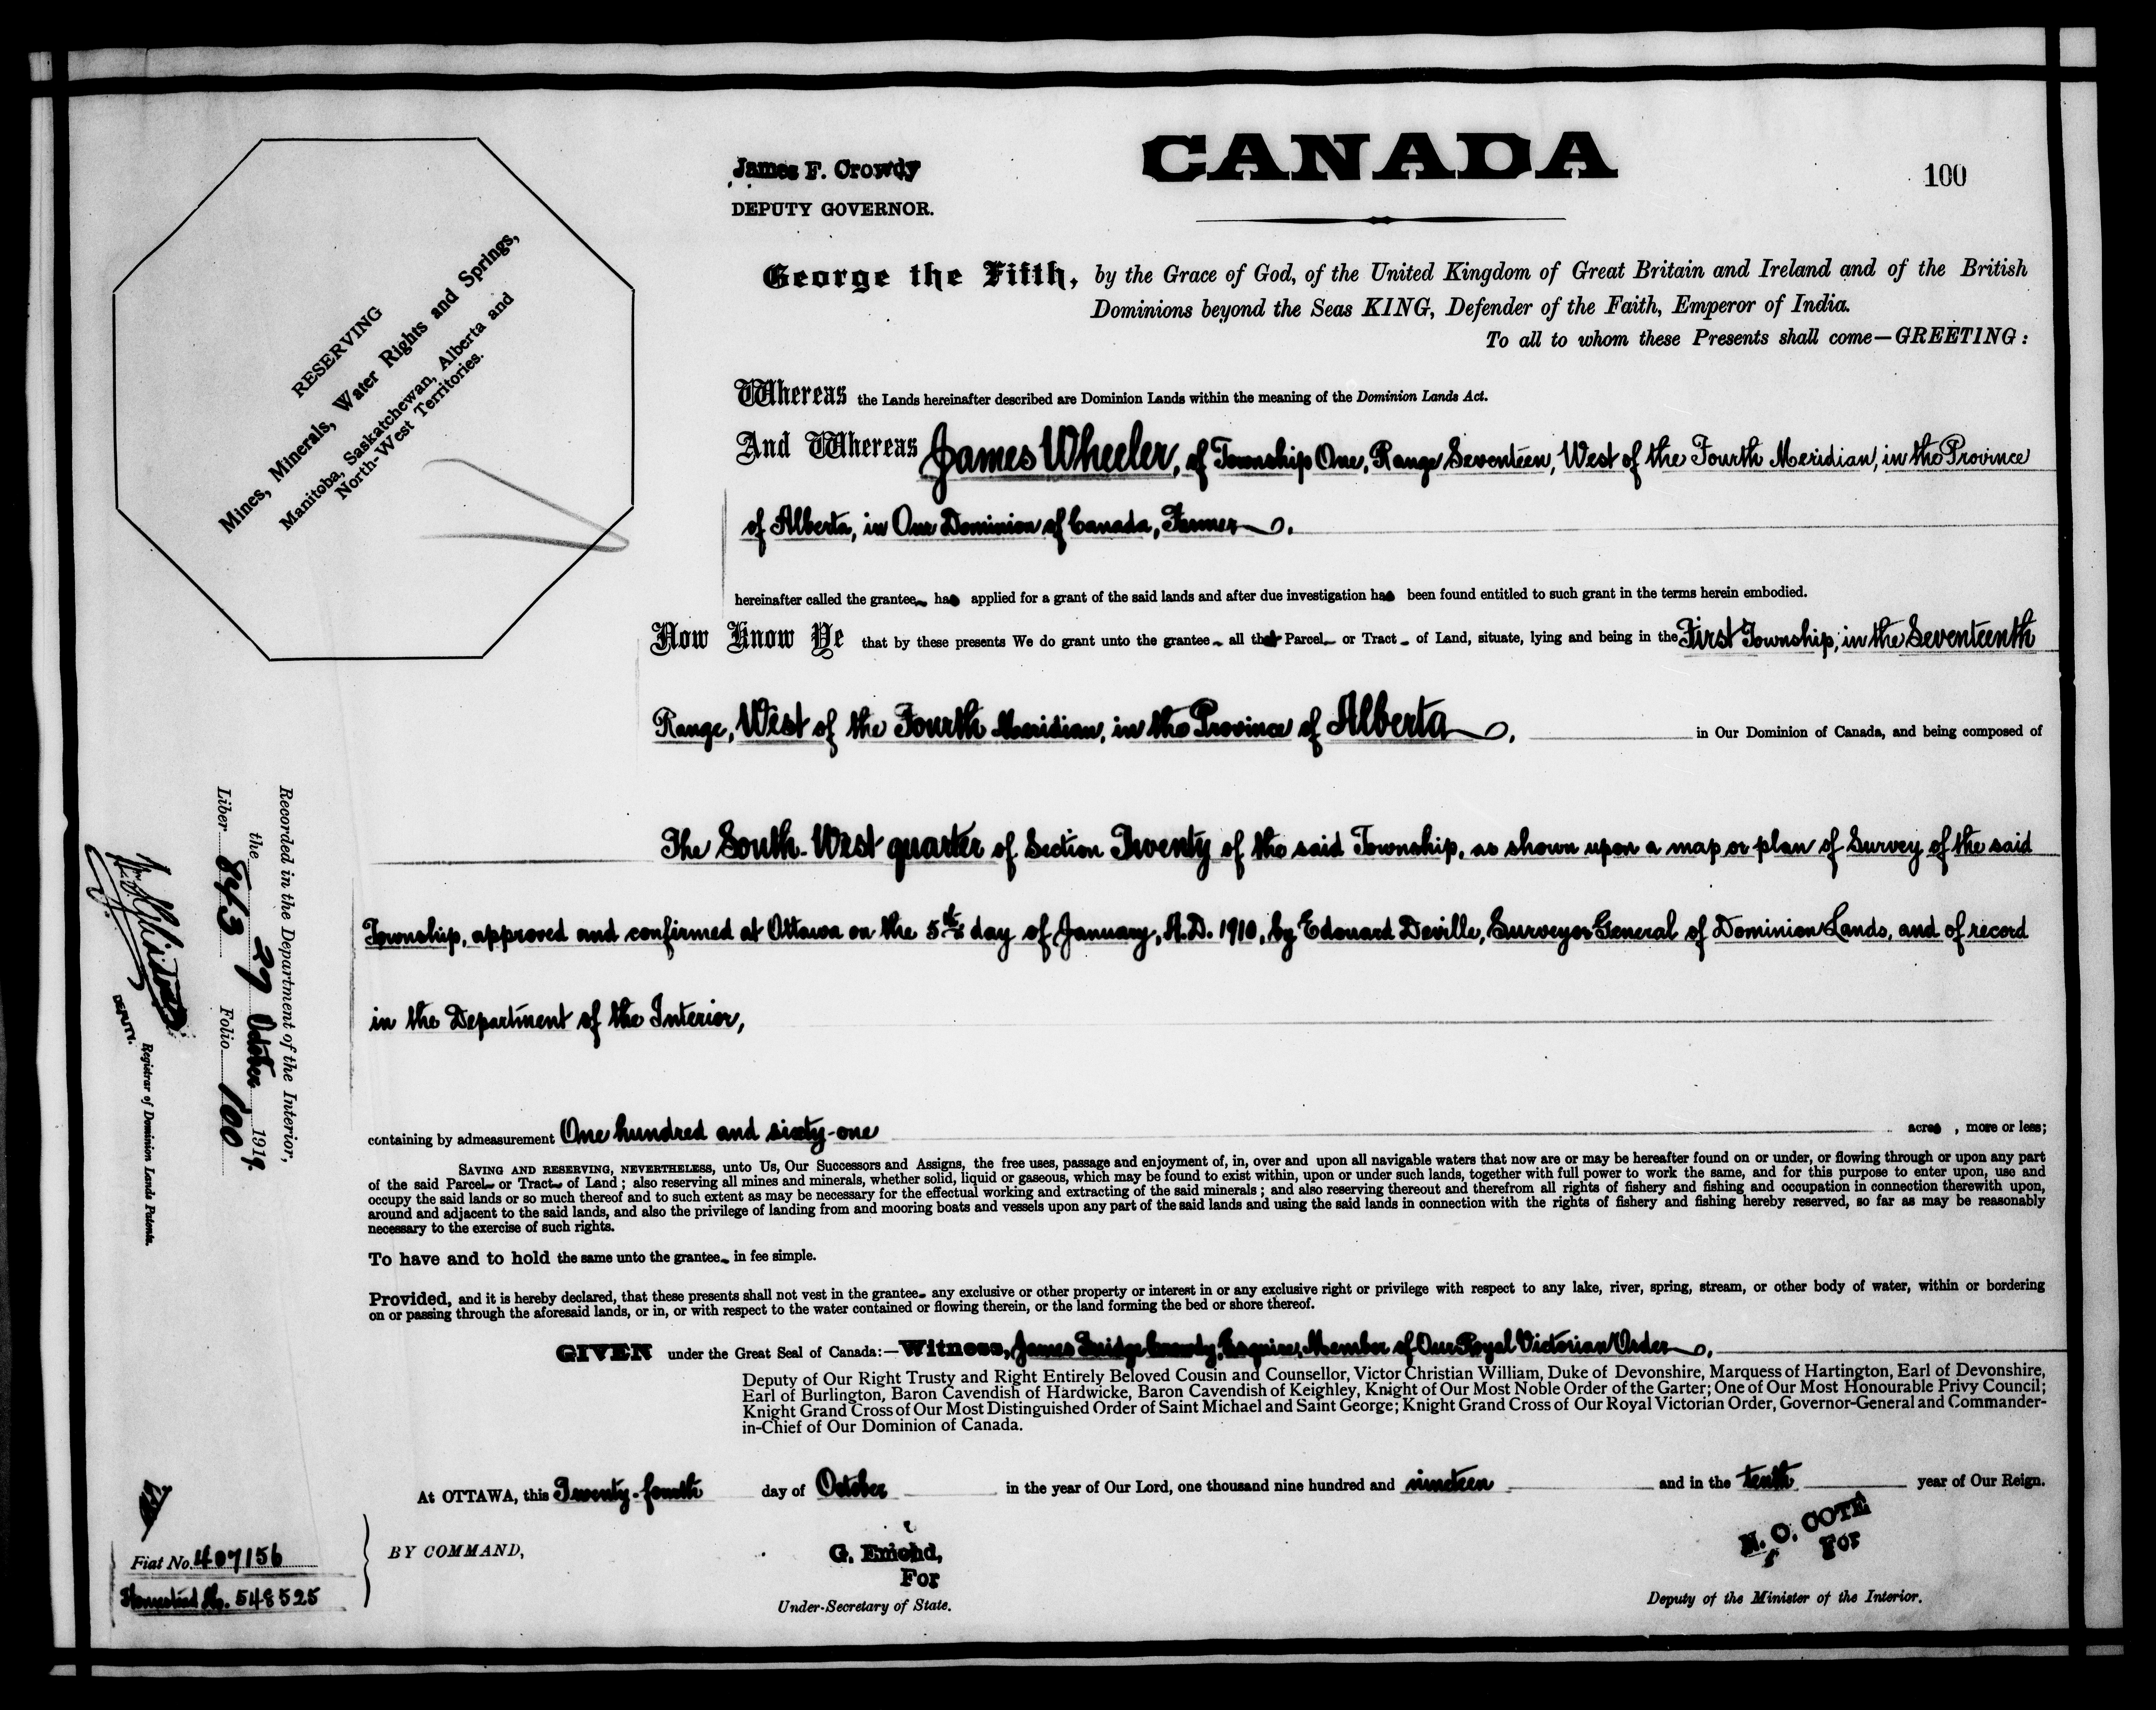 James F. Crowdy
DEPUTY GOVERNOR.
CANADA
100
RESERVING
Mines, Minerals, Water Rights and Springs,
Manitoba, Saskatchewan, Alberta and
North-West Territories.
George the Fifth, by the Grace of God, of the United Kingdom of Great Britain and Ireland and of the British
Dominions beyond the Seas KING, Defender of the Faith, Emperor of India.
To all to whom these Presents shall come—GREETING:
Whereas the Lands hereinafter described are Dominion Lands within the meaning of the Dominion Lands Act.
And Whereas James Wheeler, of Township One, Range Seventeen, West of the Fourth Meridian, in the Province
of Alberta, in Our Dominion of Canada, Farmer.
hereinafter called the grantee has applied for a grant of the said lands and after due investigation has been found entitled to such grant in the terms herein embodied.
Now Know Ye that by these presents We do grant unto the grantee all that Parcel or Tract of Land, situate, lying and being in the First Township, in the Seventeenth
Range, West of the Fourth Meridian, in the Province of Alberta, in Our Dominion of Canada, and being composed of
The South-West quarter of Section Twenty of the said Township, as shown upon a map or plan of Survey of the said
Township, approved and confirmed at Ottawa on the 5th day of January, A.D. 1910, by Edouard Deville, Surveyor General of Dominion Lands, and of record
in the Department of the Interior,
containing by admeasurement One hundred and sixty-one acres, more or less;
SAVING AND RESERVING, NEVERTHELESS, unto Us, Our Successors and Assigns, the free uses, passage and enjoyment of, in, over and upon all navigable waters that now are or may be hereafter found on or under, or flowing through or upon any part
of the said Parcel or Tract of Land; also reserving all mines and minerals, whether solid, liquid or gaseous, which may be found to exist within, upon or under such lands, together with full power to work the same, and for this purpose to enter upon, use and
occupy the said lands or so much thereof and to such extent as may be necessary for the effectual working and extracting of the said minerals; and also reserving thereout and therefrom all rights of fishery and fishing and occupation in connection therewith upon,
around and adjacent to the said lands, and also the privilege of landing from and mooring boats and vessels upon any part of the said lands and using the said lands in connection with the rights of fishery and fishing hereby reserved, so far as may be reasonably
necessary to the exercise of such rights.
To have and to hold the same unto the grantee in fee simple.
Provided, and it is hereby declared, that these presents shall not vest in the grantee any exclusive or other property or interest in or any exclusive right or privilege with respect to any lake, river, spring, stream, or other body of water, within or bordering
on or passing through the aforesaid lands, or in, or with respect to the water contained or flowing therein, or the land forming the bed or shore thereof.
GIVEN under the Great Seal of Canada:—Witness, James Crowdy, Esquire, Member of Our Royal Victorian Order,
Deputy of Our Right Trusty and Right Entirely Beloved Cousin and Counsellor, Victor Christian William, Duke of Devonshire, Marquess of Hartington, Earl of Devonshire,
Earl of Burlington, Baron Cavendish of Hardwicke, Baron Cavendish of Keighley, Knight of Our Most Noble Order of the Garter; One of Our Most Honourable Privy Council;
Knight Grand Cross of Our Most Distinguished Order of Saint Michael and Saint George; Knight Grand Cross of Our Royal Victorian Order, Governor-General and Commander-
in-Chief of Our Dominion of Canada.
At OTTAWA, this Twenty-fourth day of October in the year of Our Lord, one thousand nine hundred and nineteen and in the tenth year of Our Reign.
BY COMMAND,
G. Emond,
For
Under-Secretary of State.
N. O. COTE
For
Deputy of the Minister of the Interior.
Recorded in the Department of the Interior,
the 27 October 1919.
Liber 843 Folio 100
DEPUTY.
Registrar of Dominion Lands Patents.
Fiat No. 407156
Homestead No. 548525